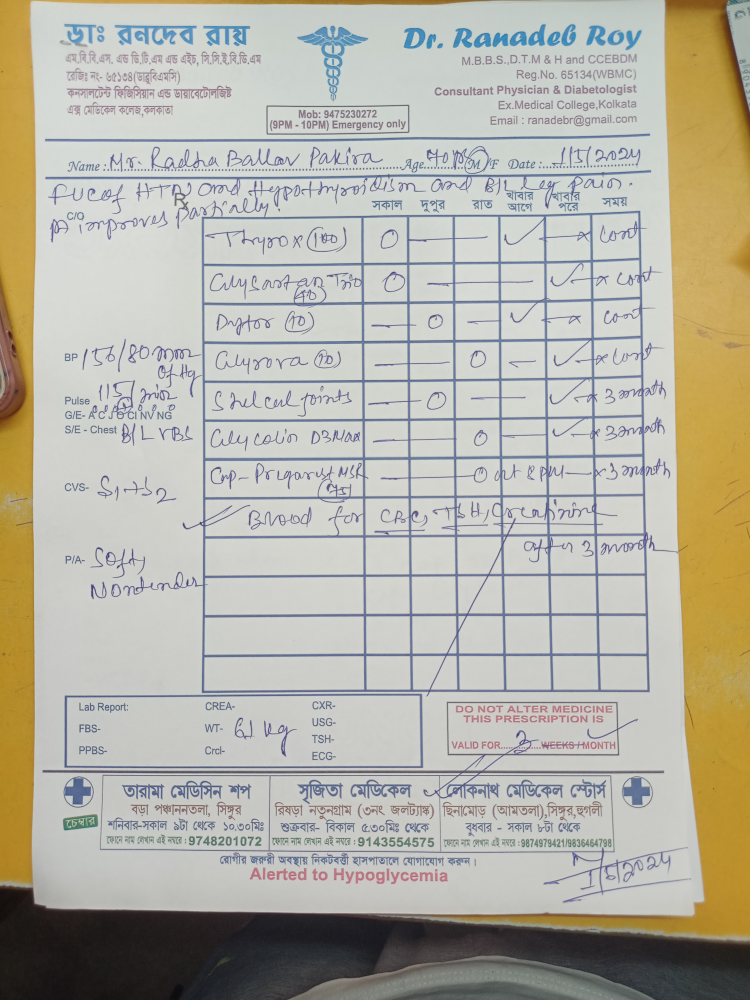 ডাঃ রনদেব রায়
এম.বি.বি.এস. এন্ড ডি.টি.এম এন্ড এইচ, সি.সি.ই.বি.ডি.এম
রেজিঃ নং- ৬৫১৩৪(ডাব্লুবিএমসি)
কনসালটেন্ট ফিজিসিয়ান এন্ড ডায়াবেটোলজিষ্ট
এক্স মেডিকেল কলেজ,কলকাতা
Mob: 9475230272
(9PM - 10PM) Emergency only
Dr. Ranadeb Roy
M.B.B.S.,D.T.M & H and CCEBDM
Reg.No. 65134(WBMC)
Consultant Physician & Diabetologist
Ex.Medical College,Kolkata
Email : ranadebr@gmail.com
Name : Mr. Radha Ballav Pakira Age 70 yrs M/F Date : 1/5/2024
FUC of HTN and Hypothyroidism and B/L leg pain.
C/O Rx
improves partially.
সকাল দুপুর রাত খাবার আগে খাবার পরে সময়
Thyrox (100) cont
Glysartan Trio (40) cont
Dytor (10) cont
BP 156/80 mm of Hg
Glyrova (10) cont
Pulse 115/min
Shelcal joints 3 month
G/E- A C J O CI NV NG
S/E - Chest B/L VBS
Glycolin D3 Max 3 month
CVS- S1+S2
Cap- 75 at 8 PM 3 month
Blood for CBC, TSH, Creatinine
after 3 month
P/A- Soft, Nontender
Lab Report: CREA- CXR-
FBS- WT- 61 kg USG-
TSH-
PPBS- Crcl- ECG-
DO NOT ALTER MEDICINE
THIS PRESCRIPTION IS
VALID FOR.....3.....WEEKS/MONTH
চেম্বার
তারামা মেডিসিন শপ
বড়া পঞ্চাননতলা, সিঙ্গুর
শনিবার-সকাল ৯টা থেকে ১০.৩০মিঃ
ফোনে নাম লেখান এই নম্বরে : 9748201072
সৃজিতা মেডিকেল
রিষড়া নতুনগ্রাম (৩নং জলট্যাঙ্ক)
শুক্রবার- বিকাল ৫.৩০মিঃ থেকে
ফোনে নাম লেখান এই নম্বরে : 9143554575
লোকনাথ মেডিকেল স্টোর্স
ছিনামোড় (আমতলা),সিঙ্গুর,হুগলী
বুধবার - সকাল ৮টা থেকে
ফোনে নাম লেখান এই নম্বরে : 9874979421/9836464798
রোগীর জরুরী অবস্থায় নিকটবর্ত্তী হাসপাতালে যোগাযোগ করুন।
Alerted to Hypoglycemia
1/5/2024